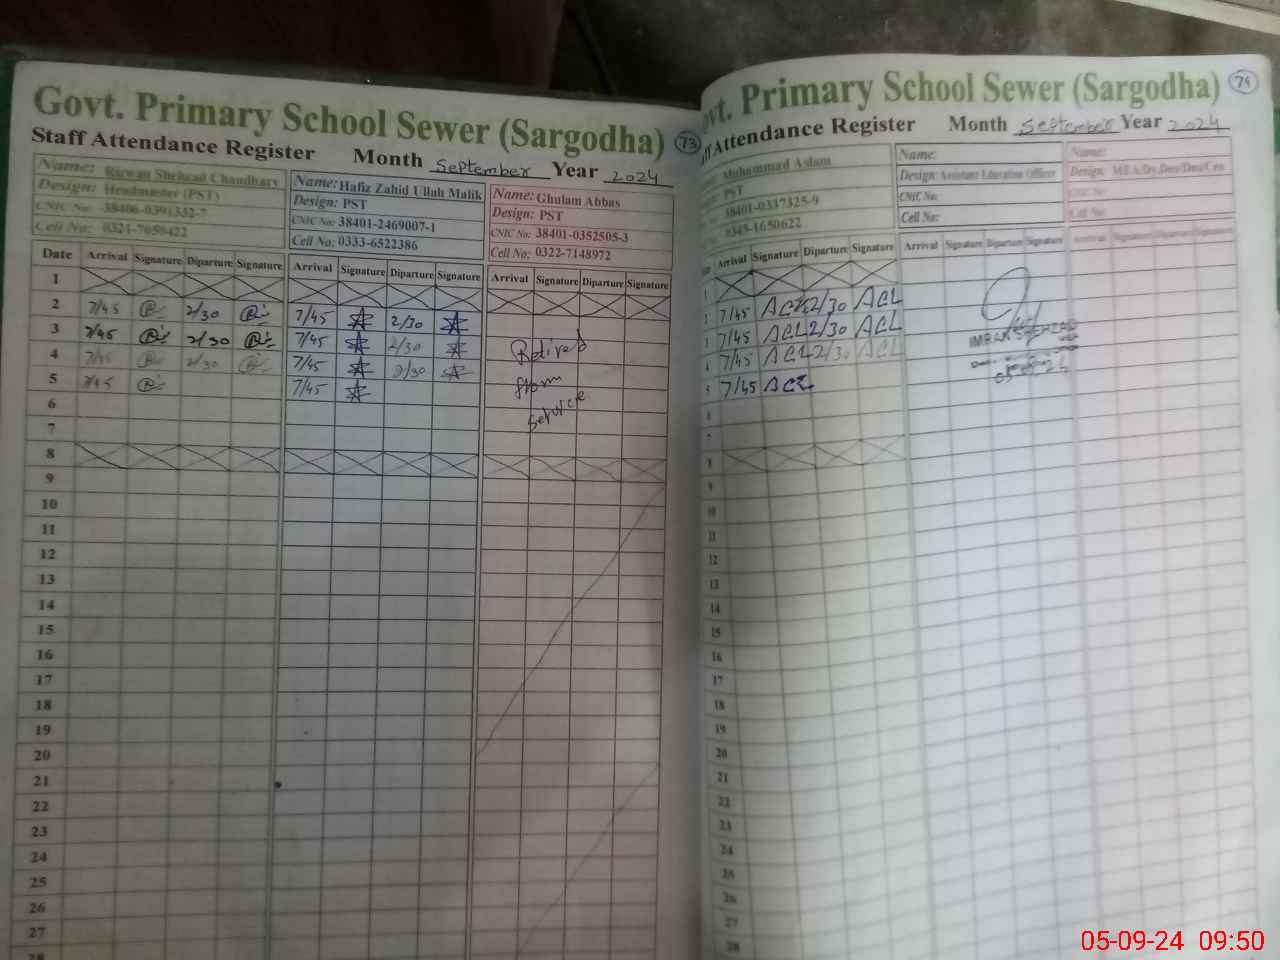 Govt. Primary School Sewer (Sargodha) 73
Staff Attendance Register Month September Year 2024
Name: Rizwan Shehzad Chaudhary
Design: Headmaster (PST)
CNIC No: 38406-0391332-7
Cell No: 0321-7050422
Name: Hafiz Zahid Ullah Malik
Design: PST
CNIC No: 38401-2469007-1
Cell No: 0333-6522386
Name: Ghulam Abbas
Design: PST
CNIC No: 38401-0352505-3
Cell No: 0322-7148972
Date Arrival Signature Diparture Signature Arrival Signature Diparture Signature Arrival Signature Diparture Signature
1
2 7/45 2/30 7/45 2/30
3 7/45 2/30 7/45 2/30
4 7/45 2/30 7/45 2/30
5 7/45 7/45
Retired
from
service
6
7
8
9
10
11
12
13
14
15
16
17
18
19
20
21
22
23
24
25
26
27
28
vt. Primary School Sewer (Sargodha) 74
ff Attendance Register Month September Year 2024
Muhammad Aslam
PST
38401-0337325-9
0345-1650622
Name:
Design: Assistant Education Officer
CNIC No:
Cell No:
Name:
Design: MEA/Dy.Deo/Deo/Ceo
CNIC No:
Cell No:
Arrival Signature Diparture Signature Arrival Signature Diparture Signature Arrival
1
2 7/45 ACL 2/30 ACL
3 7/45 ACL 2/30 ACL
4 7/45 ACL 2/30 ACL
5 7/45 ACL
IMRAN SHEHZAD
6
7
8
9
10
11
12
13
14
15
16
17
18
19
20
21
22
23
24
25
26
27
28
05-09-24 09:50